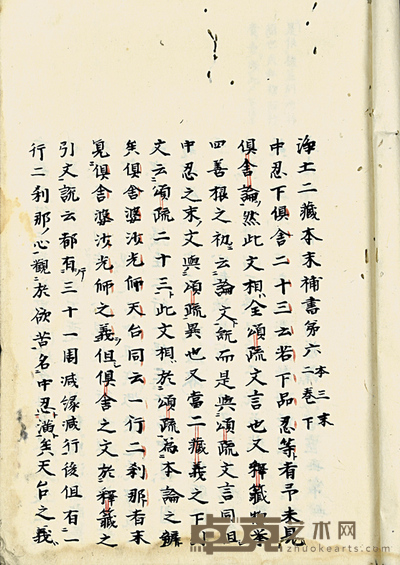 淨土二藏本末補書第六 本三末 二卷下
中忍下俱舍二十三云若下品忍等者予未見
俱舍論然此文相全頌疏文言也又釋籤
四善根之初云論文統而是與頌疏文言同
中忍之末文與頌疏異也又當二藏義之下
文云頌疏二十三此文相於頌疏為本論之歟
矣俱舍婆沙光師天台同云一行二刹那者未
見俱舍婆沙光師之義但俱舍之文於釋籤之
引文說云都有三十一周減緣減行後但有一行
行二刹那心觀於欲苦名中忍滿矣天台之義
卓克艺术网
zhuokearts.com